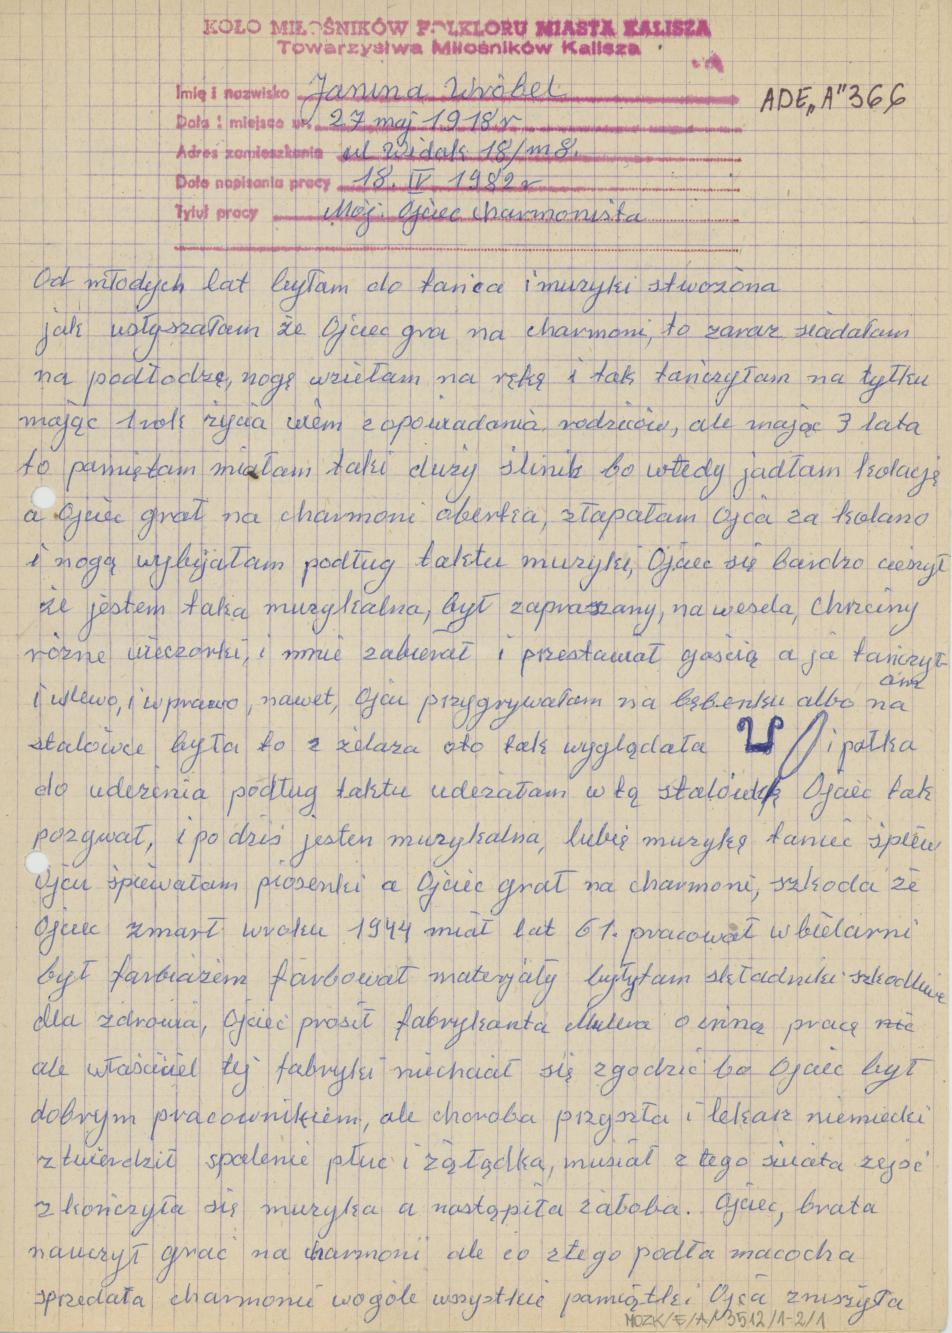 KOŁO MIŁOŚNIKÓW FOLKLORU MIASTA KALISZA
Towarzystwa Miłośników Kalisza
Imię i nazwisko Janina Wróbel
ADE„A"366
Data i miejsce ur. 27 maj 1918 r
Adres zamieszkania ul Widok 18/m8.
Data napisania pracy 18. IV 1982 r
Tytuł pracy Mój. Ojciec charmonista
Od młodych lat byłam do tańca i muzyki stwożona
jak usłyszałam że Ojciec gra na charmoni, to zaraz siadałam
na podłodze, nogę wziełam na rękę i tak tańczyłam na tyłku
mając 1 rok życia wiem z opowiadania rodziców, ale mając 3 lata
to pamiętam miałam taki duży ślinik bo wtedy jadłam kolację
a Ojciec grał na charmoni oberka, złapałam Ojca za kolano
i nogą wybijałam podług taktu muzyki, Ojciec się bardzo cieszył
że jestem taka muzykalna, był zapraszany, na wesela, chrzciny
różne wieczorki, i mnie zabierał i przestawiał gością a ja tańczył-
am
i wlewo, i wprawo, nawet, Ojcu przygrywałam na bębenku albo na
stalówce była to z żelaza oto tak wyglądała i pałka
do udeżenia podług taktu udeżałam w tą stalówkę Ojciec tak
pozywał, i po dziś jesten muzykalna, lubię muzykę taniec śpiew
Ojcu śpiewałam piosenki a Ojciec grał na charmoni, szkoda że
Ojciec zmarł wroku 1944 miał lat 61. pracował w bielarni
był farbiażem farbował materjały były tam składniki szkodliwe
dla zdrowia, Ojciec prosił fabrykanta Mulera o inną pracę nic
ale właściciel tej fabryki niechciał się zgodzić bo Ojciec był
dobrym pracownikiem, ale choroba przyszła i lekarz niemiecki
ztwierdził spalenie płuc i żąłądka, musiał z tego świata zejść
zkończyła się muzyka a nastąpiła żałoba. Ojciec, brata
nauczył grać na charmoni ale co ztego podła macocha
sprzedała charmonie wogóle wszystkie pamiątki Ojca zniszczyła
MOZK/E/A/3512/1-2/1